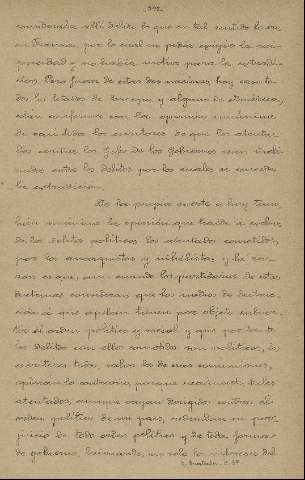 considerada allí delito lo que en tal sentido lo era
en Francia, por lo cual no podía exigirse la
, no había motivo para la extradi-
ción. Pero fuera de estas dos naciones, hoy casi to-
dos los Estados de Europa, y algunos de América,
están conformes con la opinión unánime
de casi todos los escritores de que los atenta-
dos contra los Jefes de los Gobiernos sean inclui-
dos entre los delitos por los cuales se conceda
la extradición.
De la propia suerte es hoy tam-
bién unánime la opinión que tiende a exclui-
de los delitos políticos los atentados cometidos
por los anarquistas y nihilistas; y la ra-
zón es que, aun cuando los partidarios de estas
doctrinas consideran que los medios de destruc-
ción a que apelan tienen por objeto subver-
tir el orden político y social y que por tanto
los delitos con ellos cometidos son políticos, los
escritores todos, salvo los de esas comuniones,
opinan lo contrario, porque reconocen que tales
atentados, aunque vayan dirigidos contra el
orden político de un país, redundan en per-
juicio de todo orden político y de toda forma
de gobierno, lesionando, no solo los intereses del